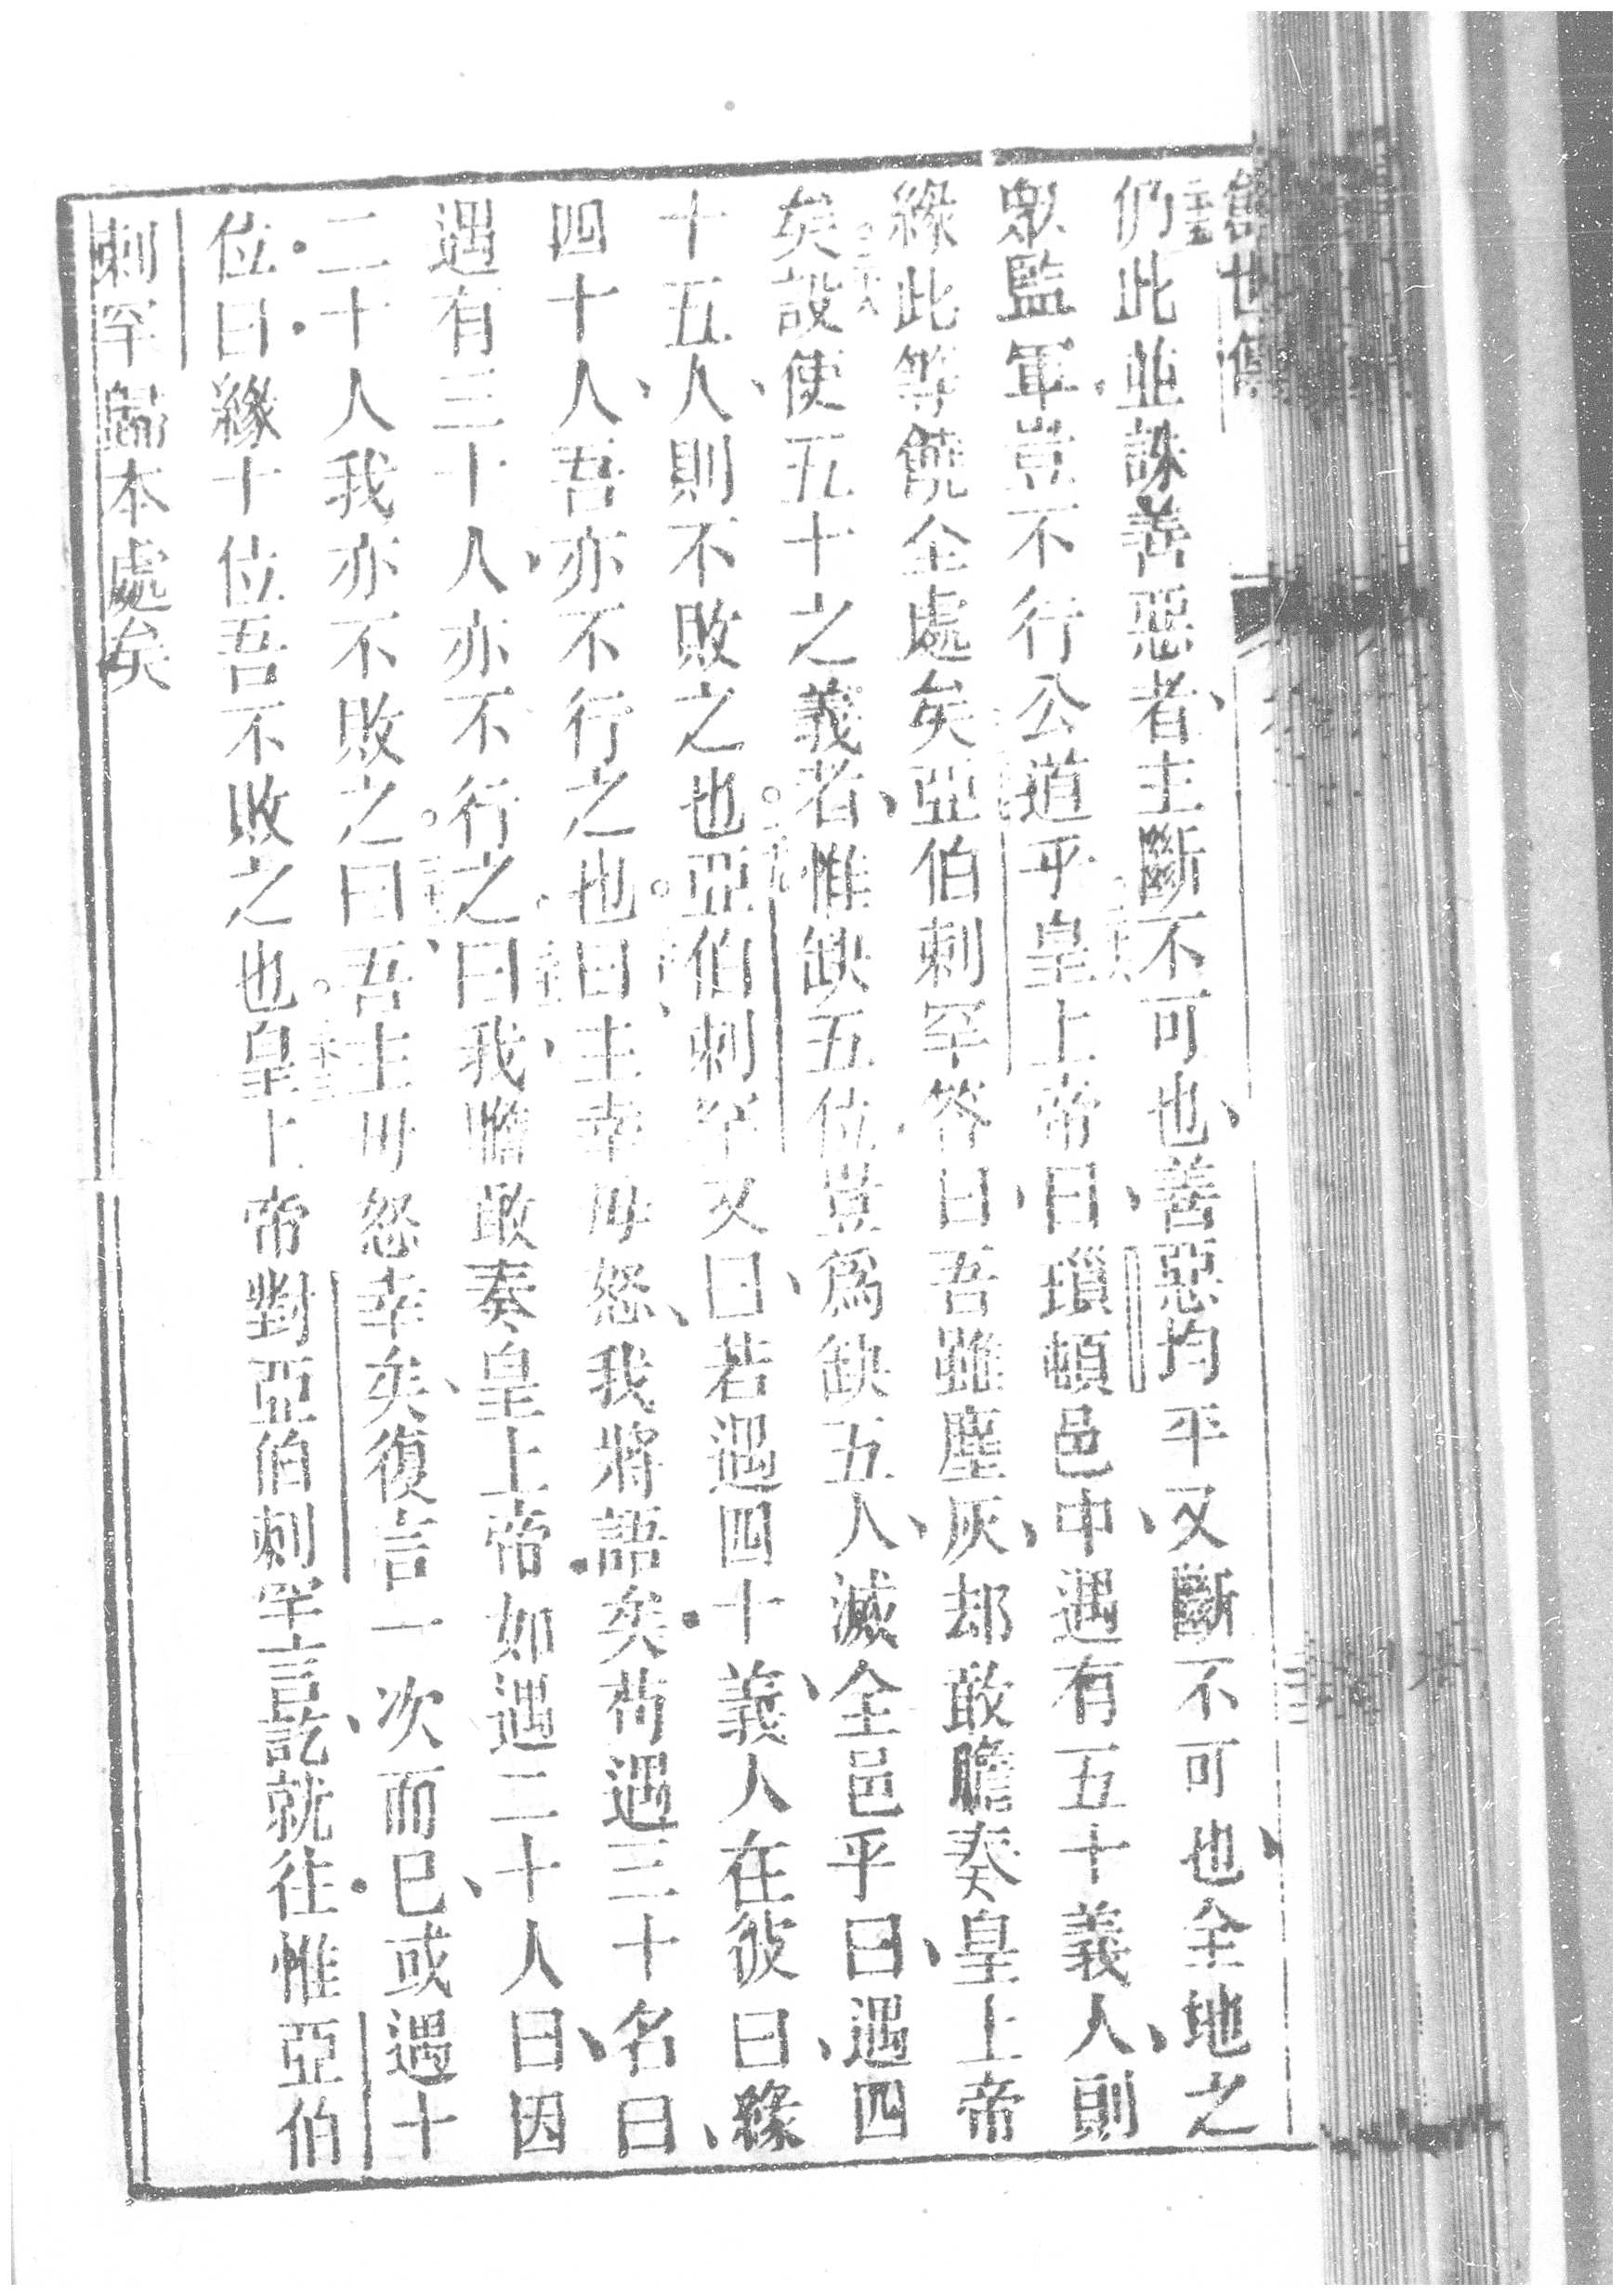 們此並誅善惡者主斷不可也善惡均平又斷不可也全地之
眾監軍豈不行公道乎皇上帝曰瑣頓邑中遇有五十義人則
緣此等饒全處矣亞伯剌罕答曰吾雖塵灰却敢膽奏皇上帝
矣設使五十之義者惟缺五位豈為缺五人滅全邑乎曰遇四
十五人則不敗之也亞伯剌罕又曰若遇四十義人在彼曰緣
四十人吾亦不行之也曰主幸毋怒我將語矣苟遇三十名曰
遇有三十人亦不行之曰我膽敢奏皇上帝如遇二十人曰因
二十人我亦不敗之曰吾主毋怒幸矣復言一次而已或遇十
位曰緣十位吾不敗之也皇上帝對亞伯剌罕言訖就往惟亞伯
剌罕歸本處矣